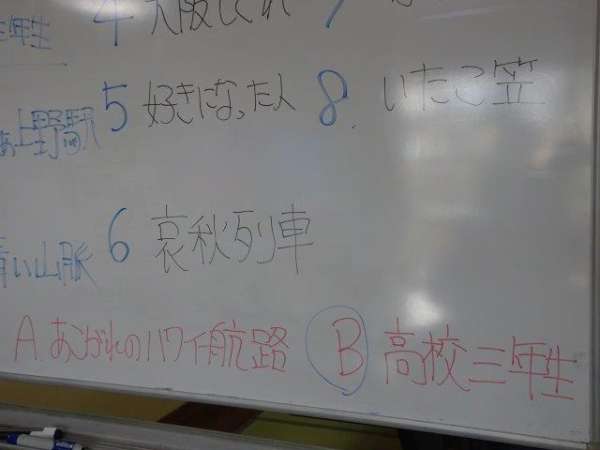 三年生
4 大阪しぐれ
7
あゝ上野駅
5 好きになった人
8 いたこ笠
青い山脈
6 哀秋列車
A あこがれのハワイ航路
B 高校三年生